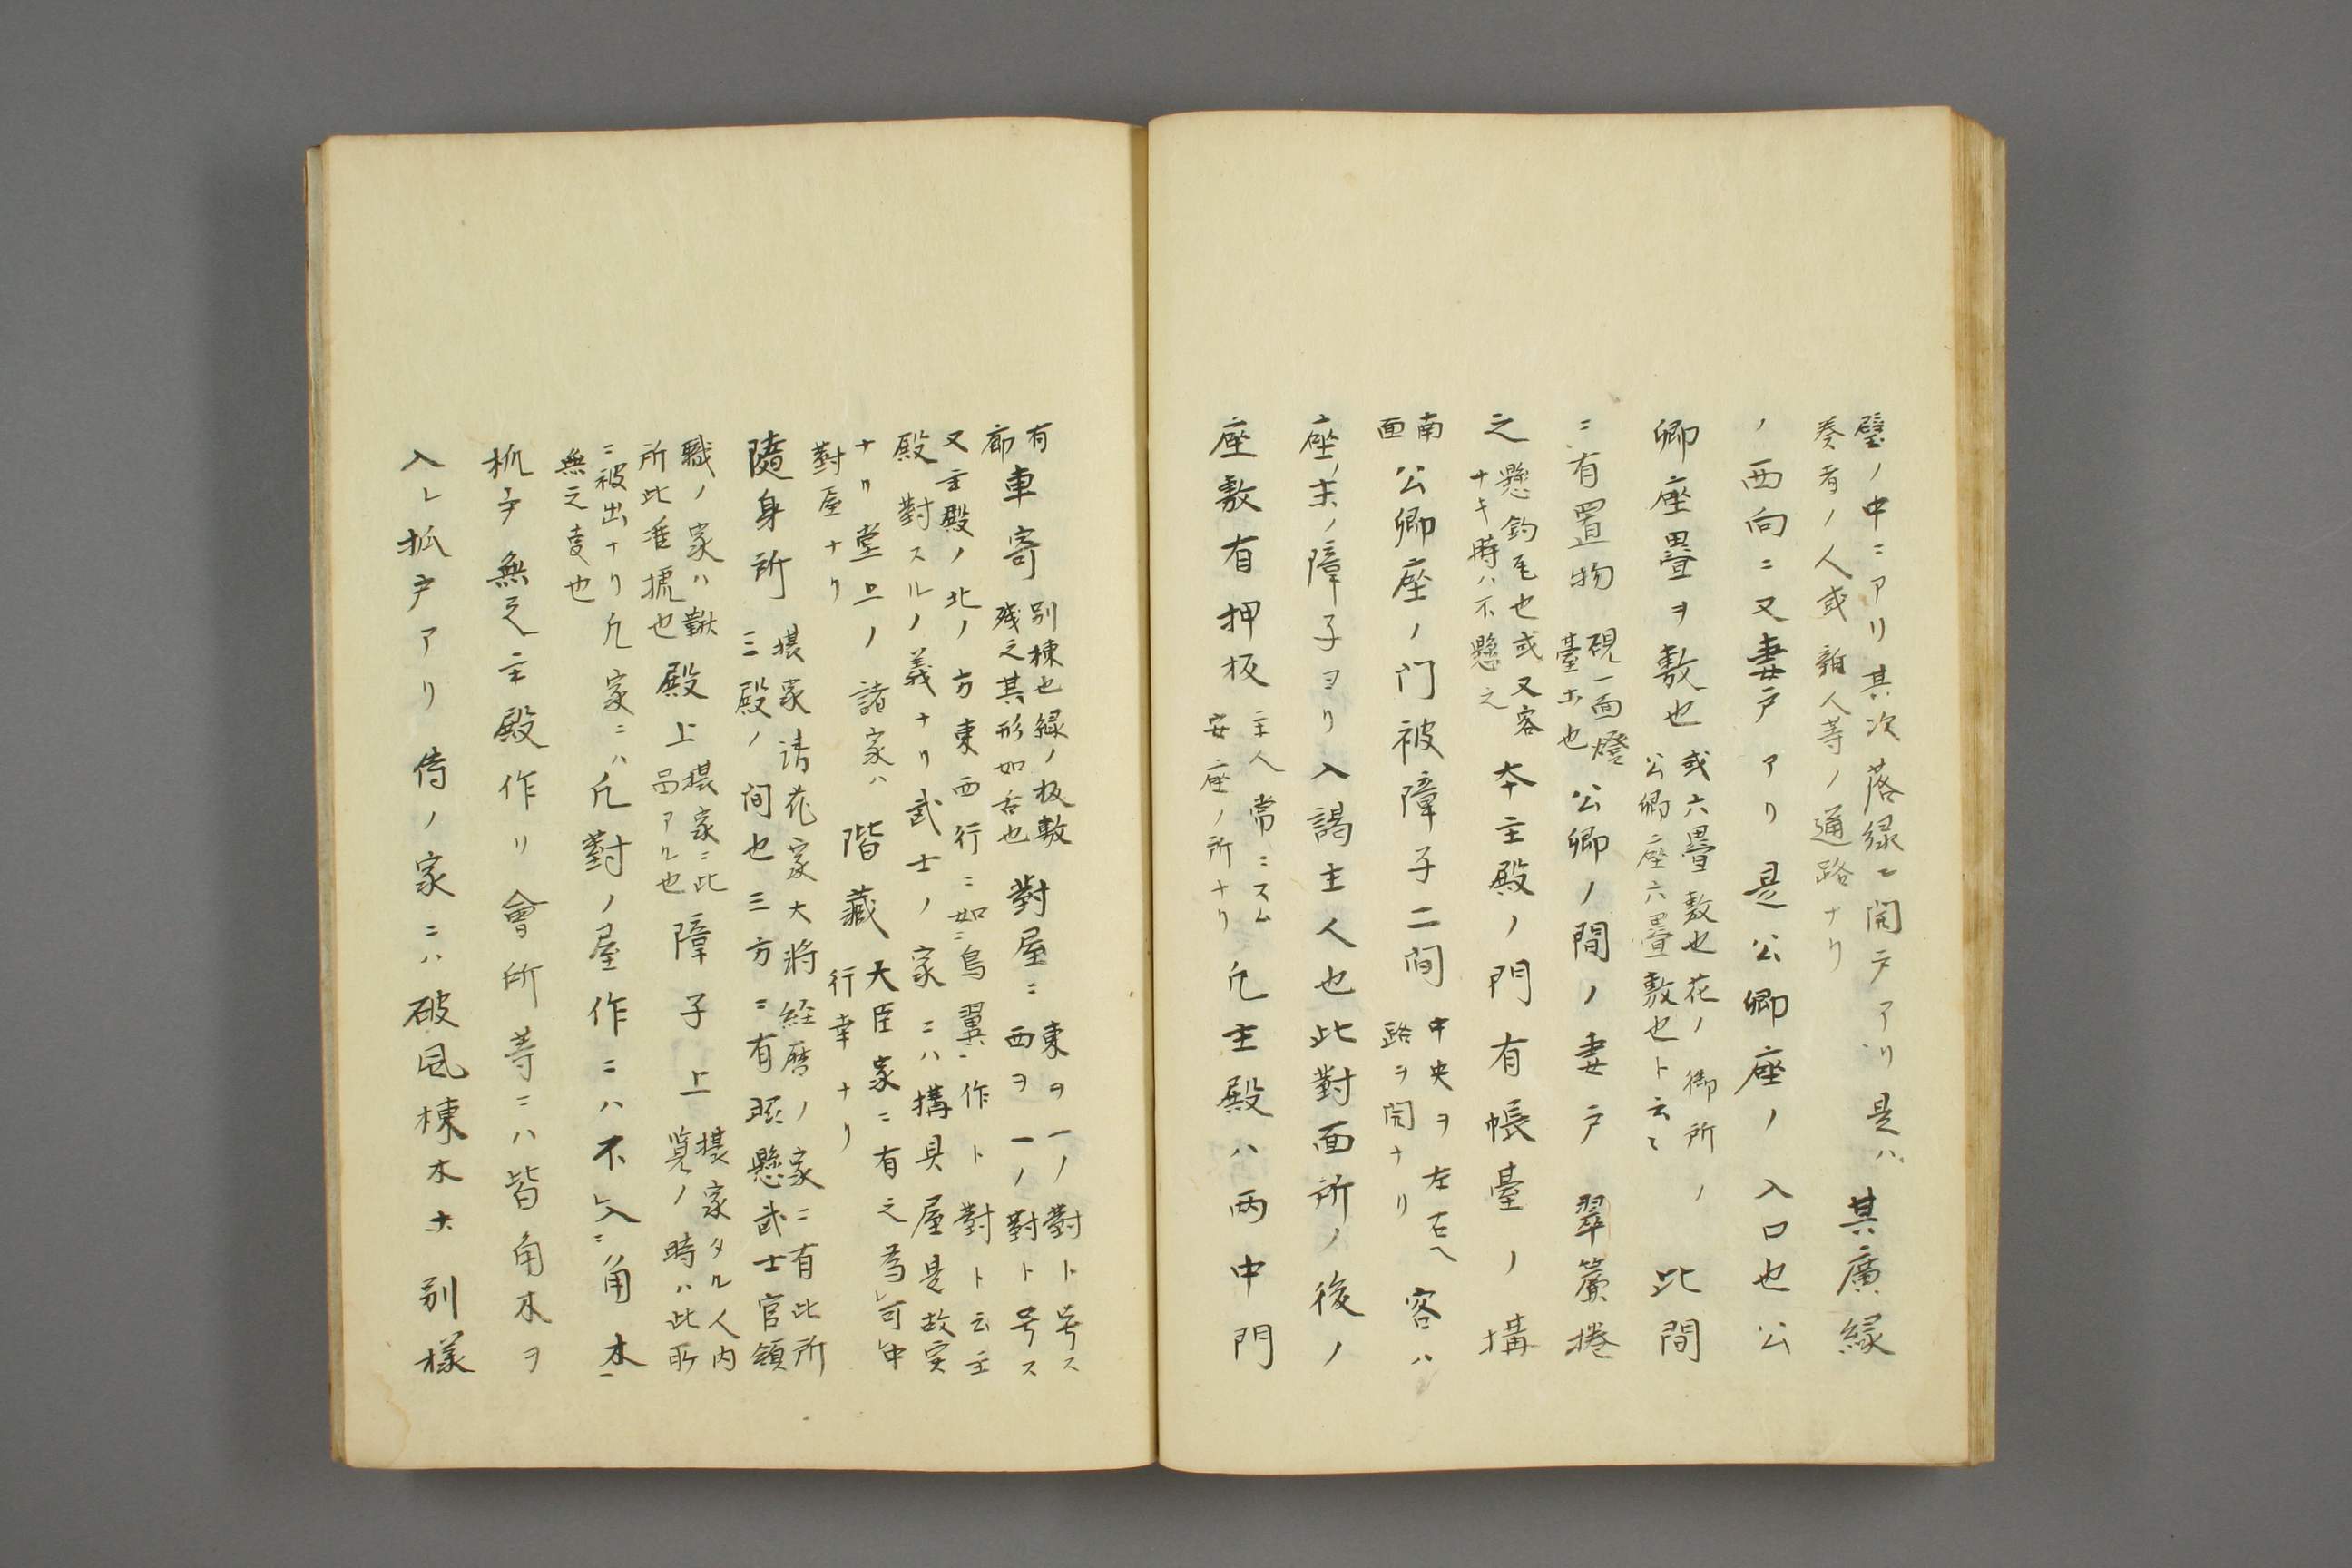 壁ノ中ニアリ其次落縁ニ開戸アリ是ハ
奏者ノ人或雜人等ノ通路ナリ
其廣縁
ノ西向ニ又妻戸アリ是公卿座ノ入口也公
卿座疊ヲ敷也
或六疊敷也花ノ御所ノ
公卿座六疊敷也ト云々
此間
ニ有置物
硯一面燈
臺木也
公卿ノ間ノ妻戸翠簾捲
之
懸鈎毛也或又客
ナキ時ハ不懸之
本主殿ノ門有帳臺ノ構
南
面
公卿座ノ门被障子二间
中央ヲ左右へ
路ヲ開ナリ
客ハ
座ノ末ノ障子ヨリ入謁主人也此對面所ノ後ノ
座敷有押板
主人常ニスム
安座ノ所ナリ
凡主殿ハ两中門
有
廊
車寄
別棟也緑ノ板敷
残之其形如舌也
對屋ニ
東ヲ一ノ對ト号ス
西ヲ一ノ對ト号ス
又主殿ノ北ノ方東西行ニ如ニ鳥翼ノ作ト對ト云主
殿對スルノ義ナリ武士ノ家ニハ構具屋是故実
ナリ堂上ノ諸家ハ
對屋ナリ
階藏
大臣家ニ有之為レ可レ申
行幸ナリ
隨身所
摂家請花家大将経歴ノ家ニ有此所
三殿ノ间也三方ニ有懸武士官領
職ノ家ハ
所此准拠也
殿上
摂家ニ此
品アル也
障子上
摂家タル人内
覧ノ時ハ此所
ニ被出ナリ凡家ニハ
無之支也
凡對ノ屋作ニハ不レ入ニ角木
狐戸無之主殿作リ會所等ニハ皆角木ヲ
入レ狐戸アリ侍ノ家ニハ破風棟木木別様